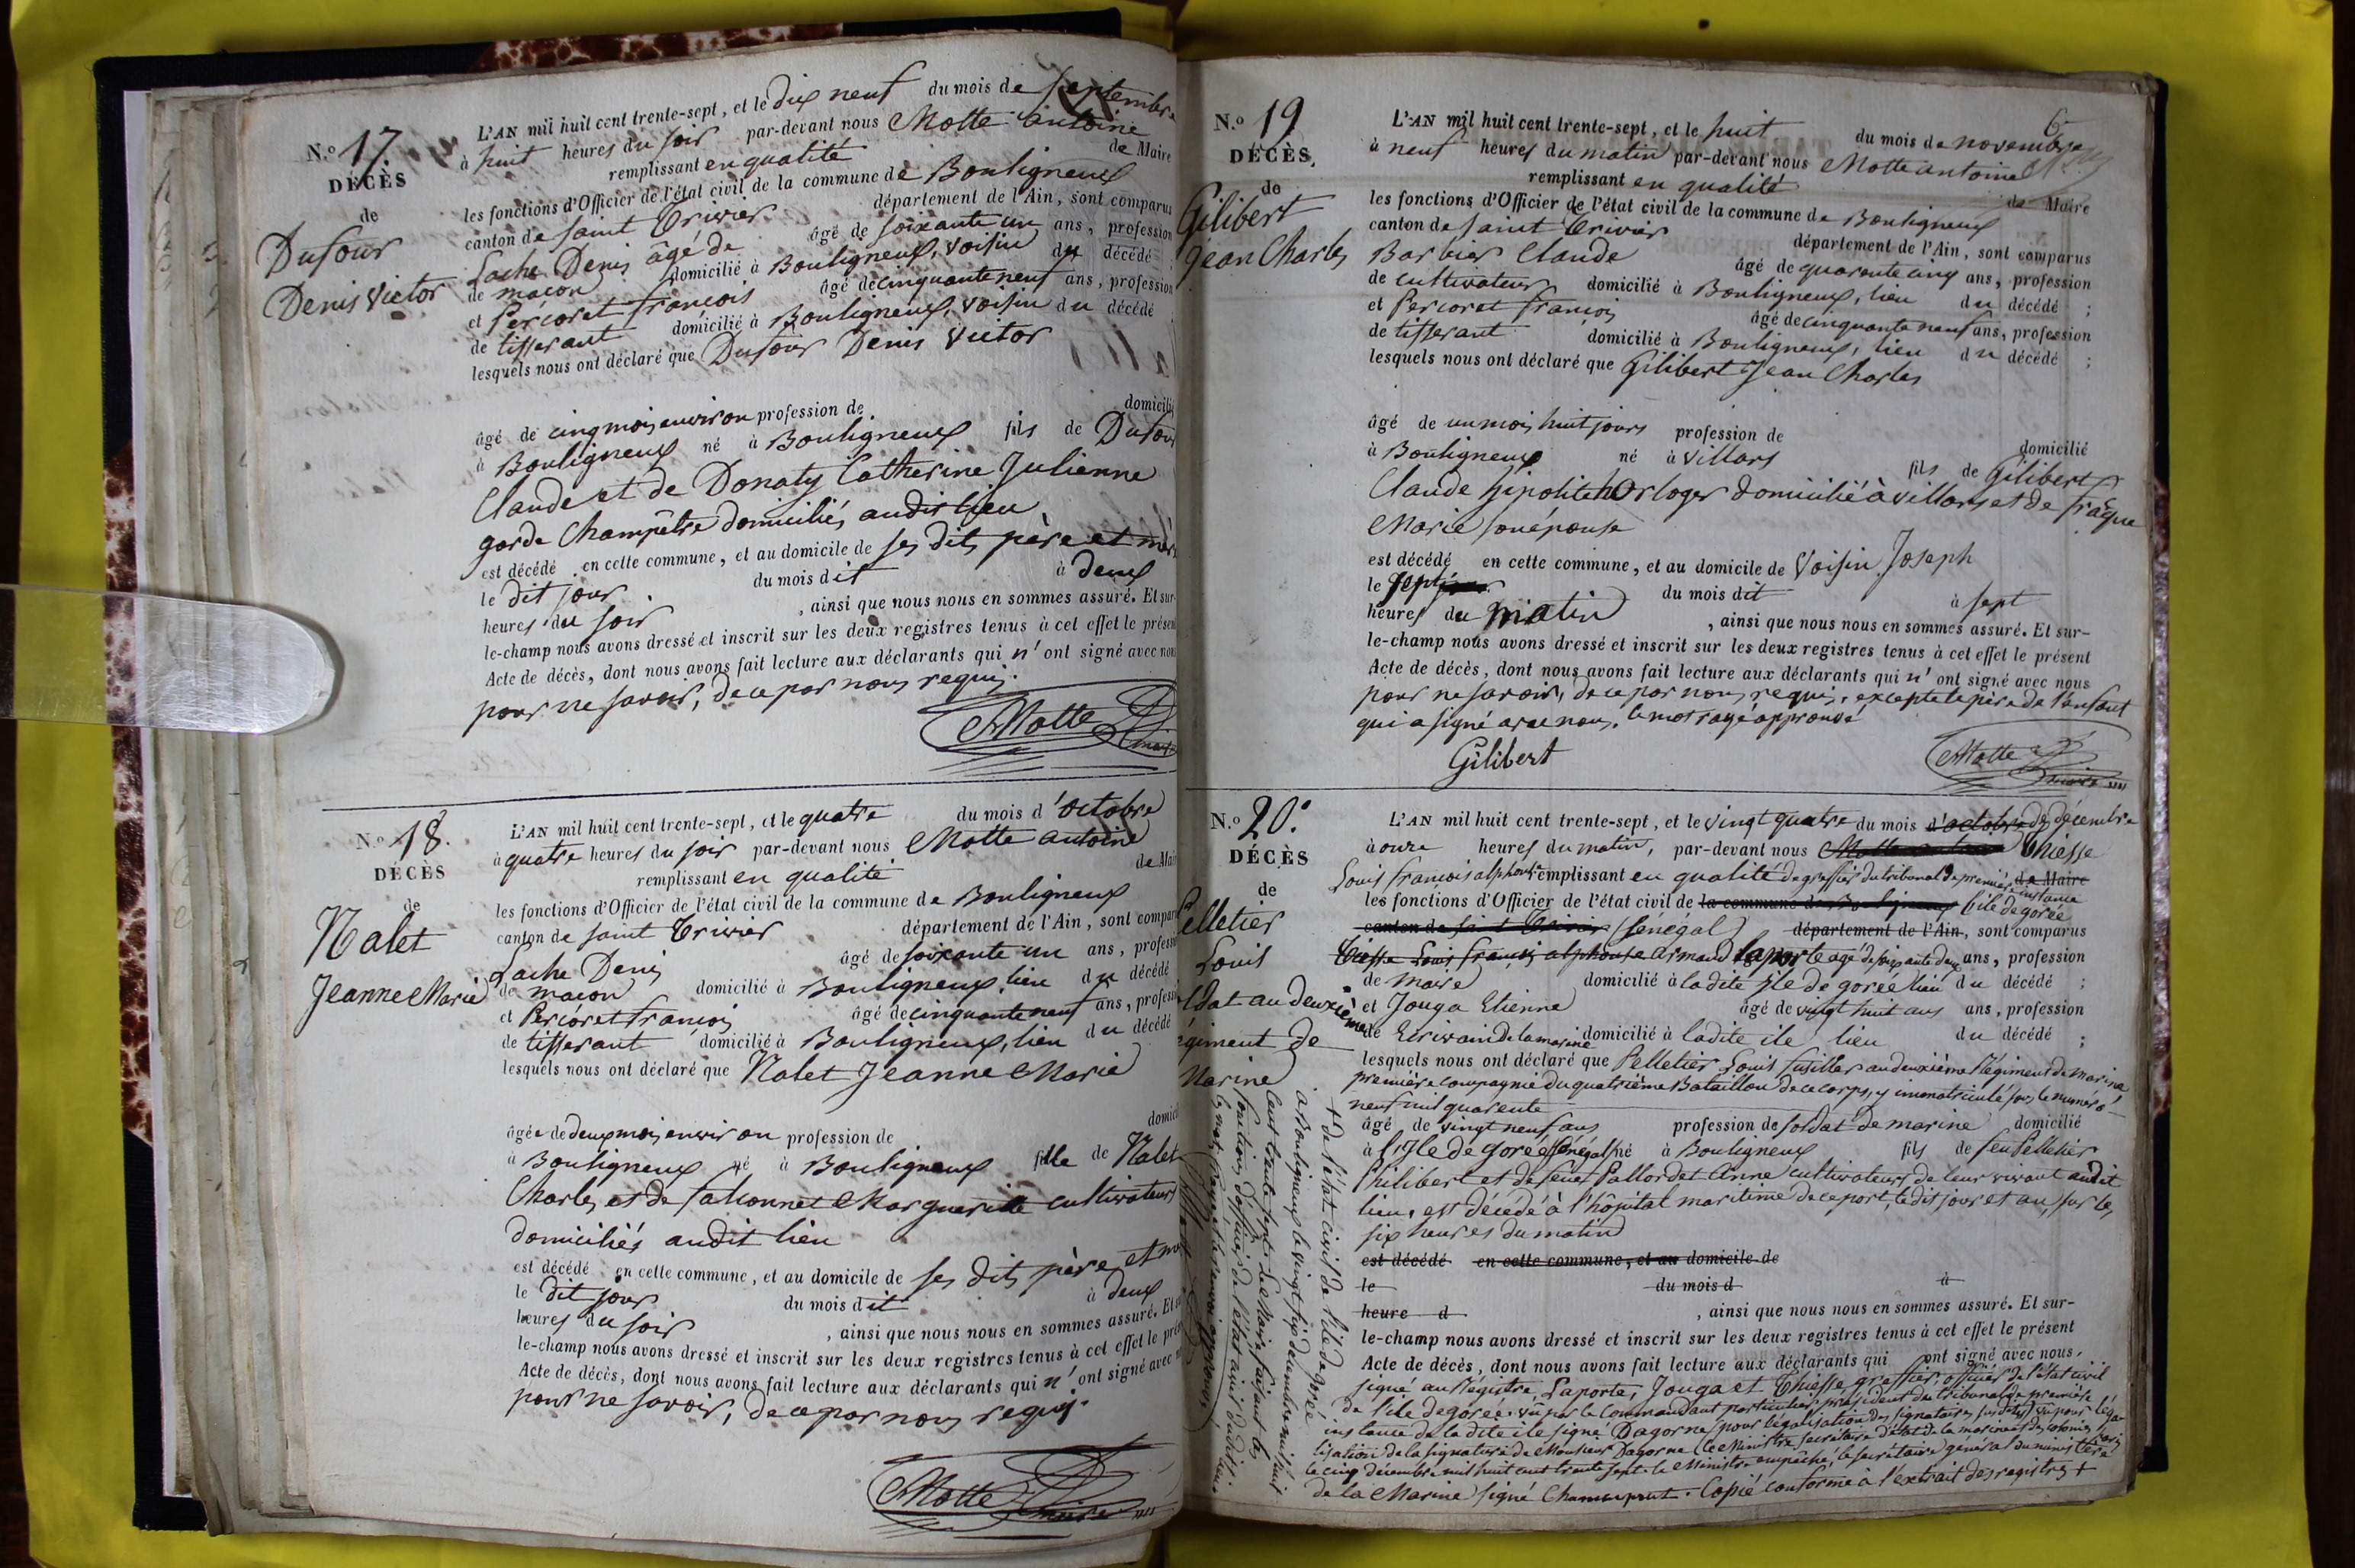 N.º 17
DÉCÈS
de
Dufour
Denis Victor
L'AN mil huit cent trente-sept, et le dix neuf du mois de septembre
à huit heures du soir par-devant nous Motte antoine
remplissant en qualité de Maire
les fonctions d'Officier de l'état civil de la commune de Bouligneux
canton de saint Trivier département de l'Ain, sont comparus
Lache Denis âgé de âgé de soixante un ans, profession
de maçon domicilié à Bouligneux, voisin du décédé
et Percoret françois âgé de cinquante neuf ans, profession
de tisserant domicilié à Bouligneux, voisin du décédé
lesquels nous ont déclaré que Dufour Denis Victor
âgé de cinq mois environ profession de domicilié
à Bouligneux né à Bouligneux fils de Dufour
Claude et de Donaty Catherine Julienne
garde Champêtre domiciliés audit lieu
est décédé en cette commune, et au domicile de ses dits père et mère
le dit jour du mois dit à deux
heures du soir, ainsi que nous nous en sommes assuré. Et sur-
le-champ nous avons dressé et inscrit sur les deux registres tenus à cet effet le présent
Acte de décès, dont nous avons fait lecture aux déclarants qui n'ont signé avec nous
pour ne savoir, de ce par nous requis.
Motte
maire
N.º 18.
DÉCÈS
de
Nalet
Jeanne Marie
L'AN mil huit cent trente-sept, et le quatre du mois d'octobre
à quatre heures du soir par-devant nous Motte antoine
remplissant en qualité de Maire
les fonctions d'Officier de l'état civil de la commune de Bouligneux
canton de saint Trivier département de l'Ain, sont comparus
Lache Denis âgé de soixante un ans, profession
de maçon domicilié à Bouligneux, lieu du décédé
et Percoret françois âgé de cinquante neuf ans, profession
de tisserant domicilié à Bouligneux, lieu du décédé
lesquels nous ont déclaré que Nalet Jeanne Marie
âgée de deux mois environ profession de domicilié
à Bouligneux né à Bouligneux fille de Nalet
Charles et de falconnet Marguerite cultivateurs
domiciliés audit lieu
est décédé en cette commune, et au domicile de ses dits père et mère
le dit jour du mois dit à deux
heures du soir, ainsi que nous nous en sommes assuré. Et sur-
le-champ nous avons dressé et inscrit sur les deux registres tenus à cet effet le présent
Acte de décès, dont nous avons fait lecture aux déclarants qui n'ont signé avec nous
pour ne savoir, de ce par nous requis.
Motte
maire
6
N.º 19
DÉCÈS,
de
Gilibert
Jean Charles
L'AN mil huit cent trente-sept, et le huit du mois de novembre
à neuf heures du matin par-devant nous Motte antoine
remplissant en qualité de Maire
les fonctions d'Officier de l'état civil de la commune de Bouligneux
canton de saint Trivier département de l'Ain, sont comparus
Barbier Claude âgé de quarente cinq ans, profession
de cultivateur domicilié à Bouligneux, lieu du décédé ;
et Percoret françois âgé de cinquante neuf ans, profession
de tisserant domicilié à Bouligneux, lieu du décédé ;
lesquels nous ont déclaré que Gilibert Jean Charles
âgé de un mois huit jours profession de domicilié
à Bouligneux né à Villars fils de Gilibert
Claude hipolite horloger domicilié à villars et de fraque
Marie son épouse
est décédé en cette commune, et au domicile de Voisin Joseph
le sept du mois dit à sept
heures du matin, ainsi que nous nous en sommes assuré. Et sur-
le-champ nous avons dressé et inscrit sur les deux registres tenus à cet effet le présent
Acte de décès, dont nous avons fait lecture aux déclarants qui n'ont signé avec nous
pour ne savoir, de ce par nous requis, excepté le père de l'enfant
qui a signé avec nous. le mot rayé approuvé
Gilibert
Motte
maire
N.º 20.
DÉCÈS
de
Pelletier
Louis
soldat au deuxième
régiment de
Marine
L'AN mil huit cent trente-sept, et le vingt quatre du mois d'octobre de décembre
à onze heures du matin, par-devant nous Motte antoine Thiesse
Louis françois alphonse remplissant en qualité de greffier du tribunal de première instance de Maire
les fonctions d'Officier de l'état civil de la commune de Bouligneux l'île de gorée
canton de saint Trivier (sénégal) département de l'Ain, sont comparus
Thiesse Louis françois alphonse armand Laporte agé de soixante deux ans, profession
de maire domicilié à ladite île de gorée lieu du décédé ;
et Jouga Etienne âgé de vingt huit ans ans, profession
de Ecrivain de la marine domicilié à ladite île lieu du décédé ;
lesquels nous ont déclaré que Pelletier Louis fusillier au deuxième Régiment de marine
première compagnie du quatrième Bataillon de ce corps, y immatriculé sous le numéro
neuf mil quarente
âgé de vingt neuf ans profession de soldat de marine domicilié
à l'isle de gorée sénégal né à Bouligneux fils de feu Pelletier
Philibert et de feue Pallordet Anne cultivateurs de leur vivant audit
lieu, est décédé à l'hôpital maritime de ce port, le dit jour et an, sur les
six heures du matin
est décédé en cette commune, et au domicile de
le du mois d à
heure d, ainsi que nous nous en sommes assuré. Et sur-
le-champ nous avons dressé et inscrit sur les deux registres tenus à cet effet le présent
Acte de décès, dont nous avons fait lecture aux déclarants qui ont signé avec nous.
signé au Régistre, Laporte, Jouga et Thiesse greffier, officier de l'état civil
de l'île de gorée. vu par le Commandant particulier président du tribunal de première
instance de la dite île signé Dagorne pour légalisation des signatures susdites, vu pour léga-
lisation de la signature de Monsieur Dagorne (le Ministre secrétaire d'état de la marine et des colonies, Paris
le cinq décembre mil huit cent trente sept. le Ministre empêché, le secrétaire général du ministère
de la Marine signé . Copié conforme à l'extrait des registres +
+ de l'état civil de l'île de gorée
a Bouligneux le vingt six décembre mil huit
cent trente sept le Maire faisant les
fonctions d'officier de l'état civil dudit lieu